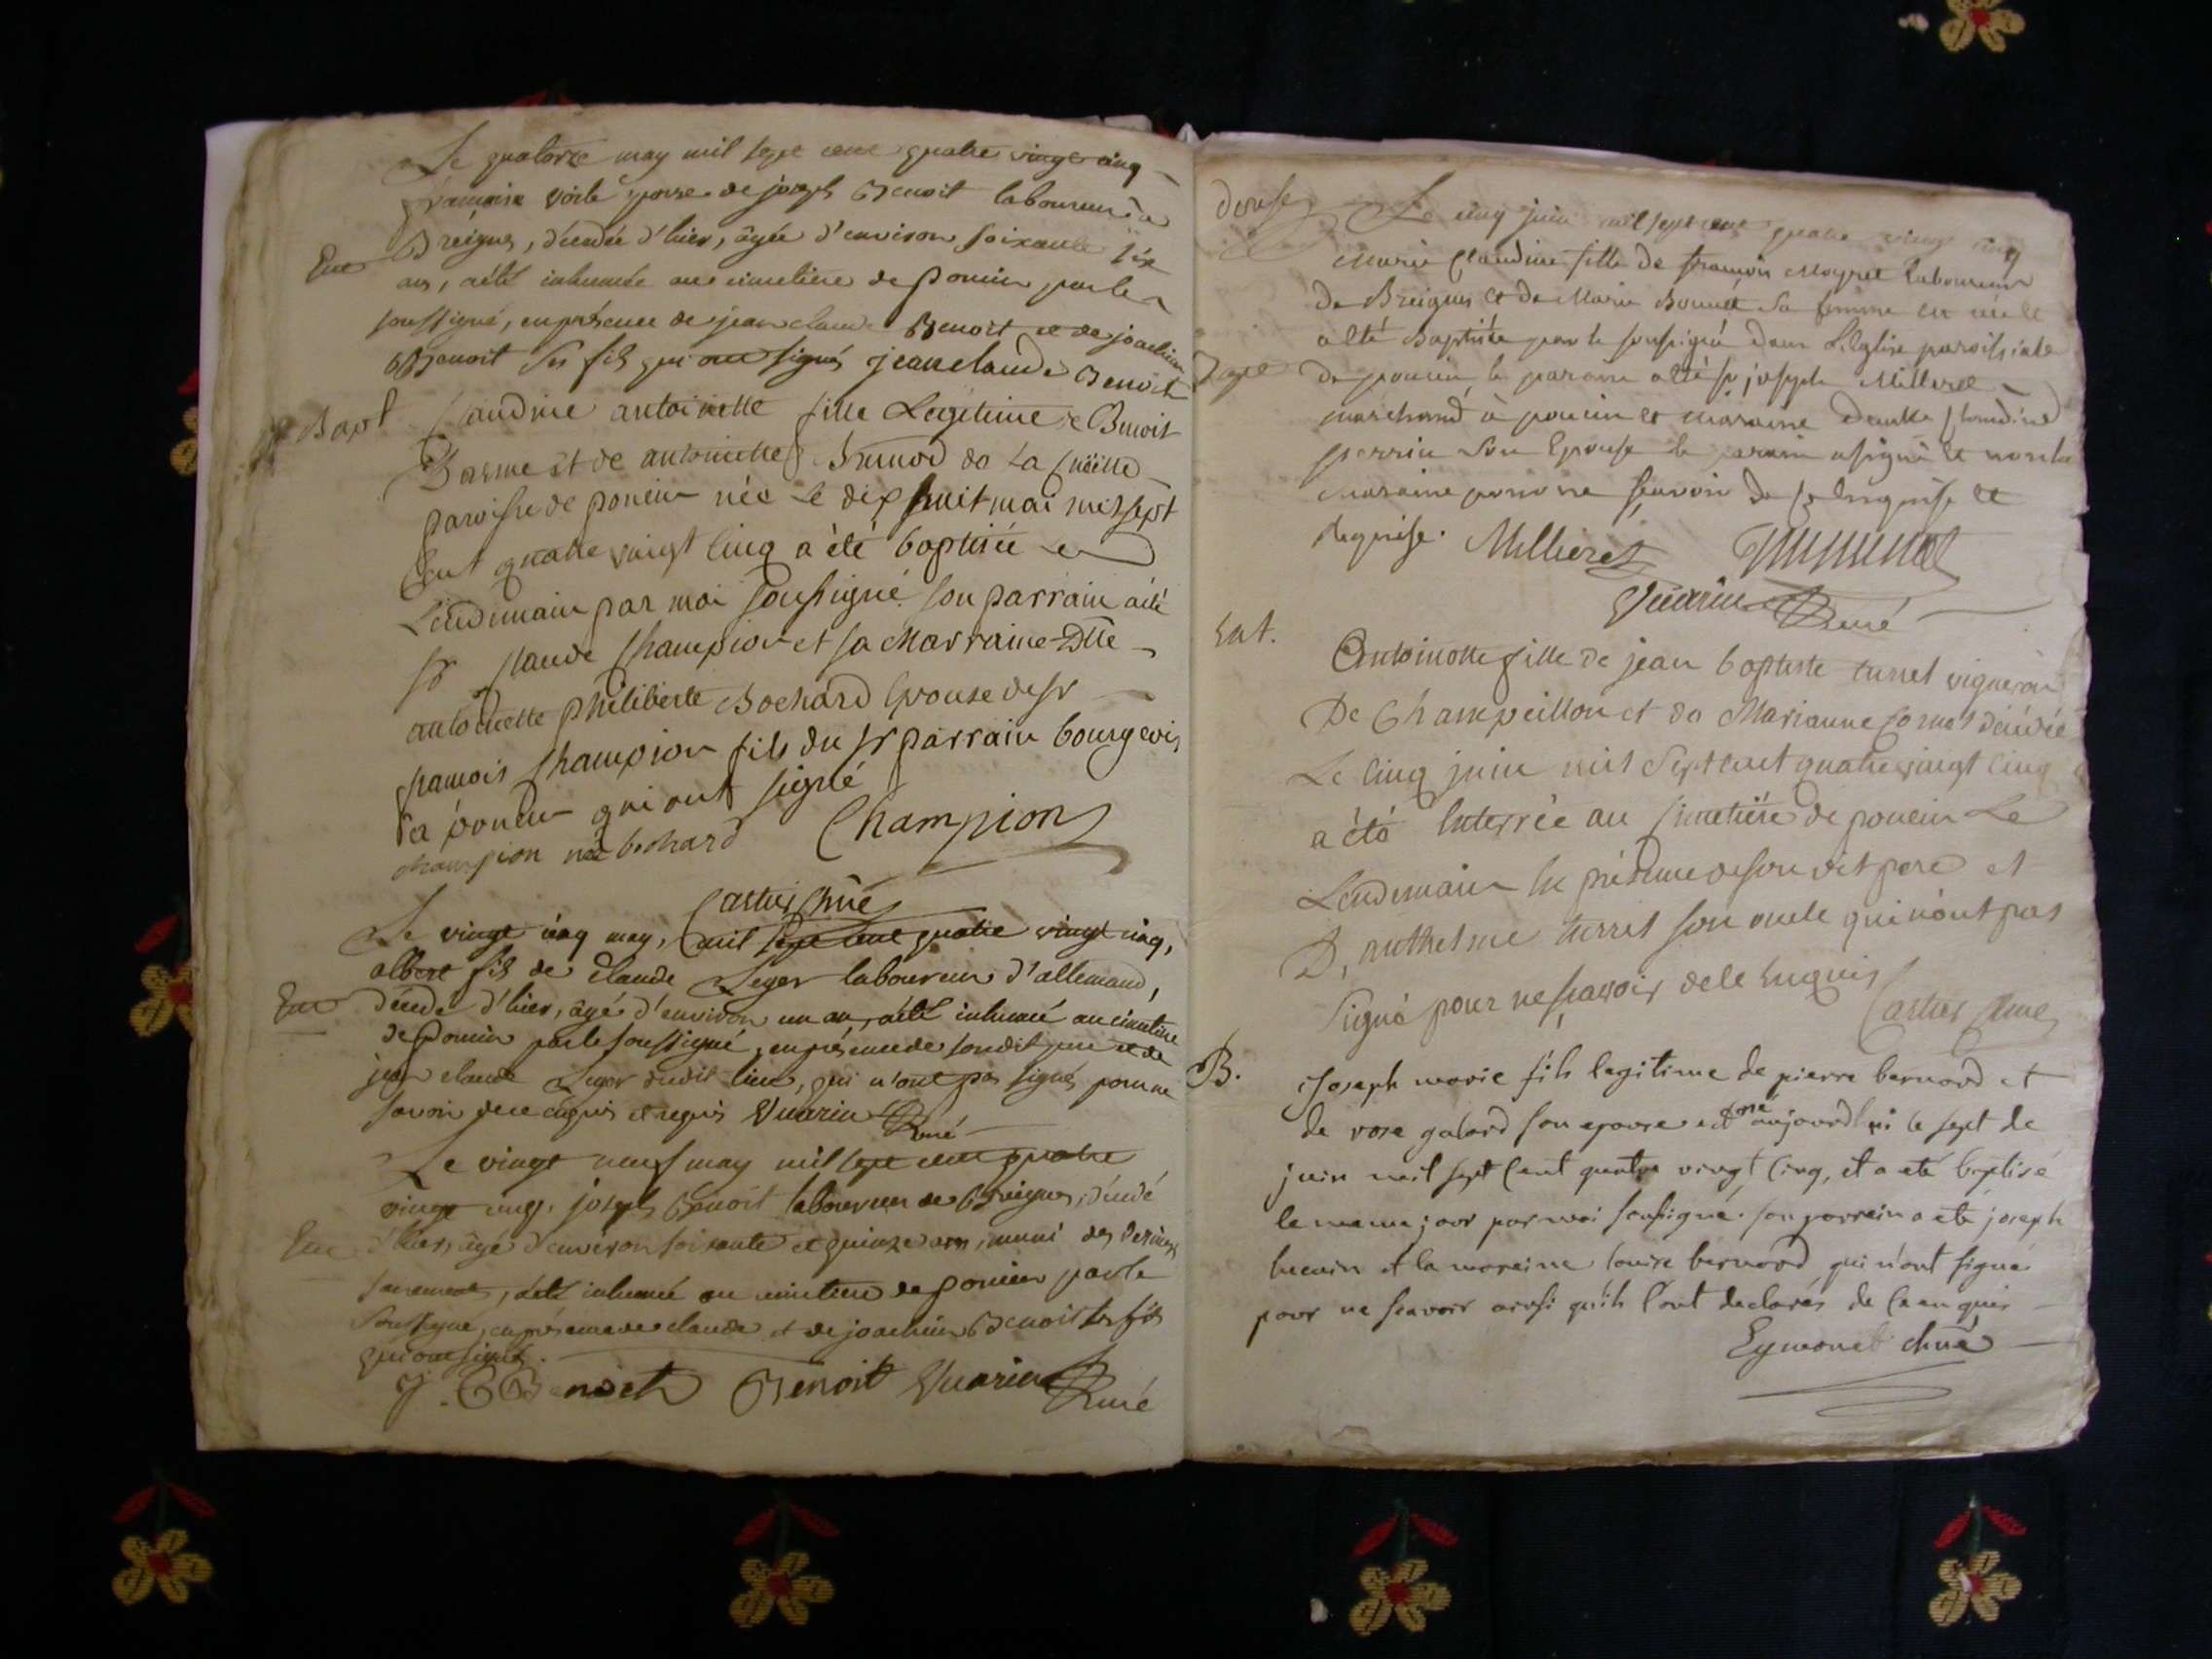 Le quatorze may mil sept cent quatre vingt cinq
françoise épouse de joseph Benoit laboureur à
Breignes, décédée d'hier, âgée d'environ soixante six
Ent
ans, a été inhumée au cimetiere de Poncin par le
soussigné, en présence de jean claude Benoit et de joachim
Benoit ses fils qui ont signés jean claude Benoit
Bapt
Claudine antoinette fille Legitime de Benoit
et de antoinette de La
paroisse de poncin née Le dix huit mai mil sept
Cent quatre vingt Cinq a été baptisée Le
Lendemain par moi soussigné son parrain a été
sr Claude Champion et sa Marraine Dlle
antoinette philiberte Bochard Epouse de sr
francois Champion fils du sr parrain bourgeois
a poncin qui ont signé
champion née bochard Champion
Cartier
Le vingt cinq may, mil sept cent quatre vingt cinq,
albert fils de Claude Leger laboureur d'allemand,
Ent
décédé d'hier, âgé d'environ un an, a été inhumé au cimetiere
de Poncin par le soussigné, en présence de son dit pere et de
jean claude Leger dudit lieu, qui n'ont pas signés pour ne
savoir de ce enquis et requis Vuarin Curé
Le vingt neuf may mil sept cent quatre
vingt cinq, joseph Benoit laboureur de Breignes, décédé
Ent
d'hier, âgé d'environ soixante et quinze ans, muni des derniers
sacrements, a été inhumé au cimetiere de poncin par le
soussigné, en présence de claude et de joachim Benoit ses fils
qui ont signés.
J. C Benoit Benoit Vuarin Curé
Le cinq juin mil sept cent quatre vingt cinq
Marie Claudine fille de françois Moyret laboureur
de Breignes et de Marie sa femme
a été Baptisée par le soussigné dans L'Eglise paroissiale
de poncin, le parain a été sr joseph Millieret
marchand à poncin et maraine Claudine
perrin son Epouse le parain a signé et non la
maraine pour ne sçavoir de ce enquise et
requise. Millieret
Vuarin Curé
Ent.
Antoinette fille de jean baptiste turrel vigneron
De Champeillon et de Marianne décédée
Le cinq juin mil Sept cent quatre vingt cinq
a été Enterrée au Cimetière de poncin Le
Lendemain En présence de son dit pere et
D, anthelme turrel son oncle qui n'ont pas
Signé pour ne sçavoir de ce Enquis
Cartier
B.
Joseph marie fils legitime de pierre bernard et
de rose galard son epouse est né aujourdhui le sept de
juin mil sept cent quatre vingt cinq, et a eté baptisé
le meme jour par moi soussigné. son parrein a eté joseph
et la mareine louise bernard qui n'ont signé
pour ne scavoir ainsi qu'ils l'ont declarés de ce enquis
Eymonet